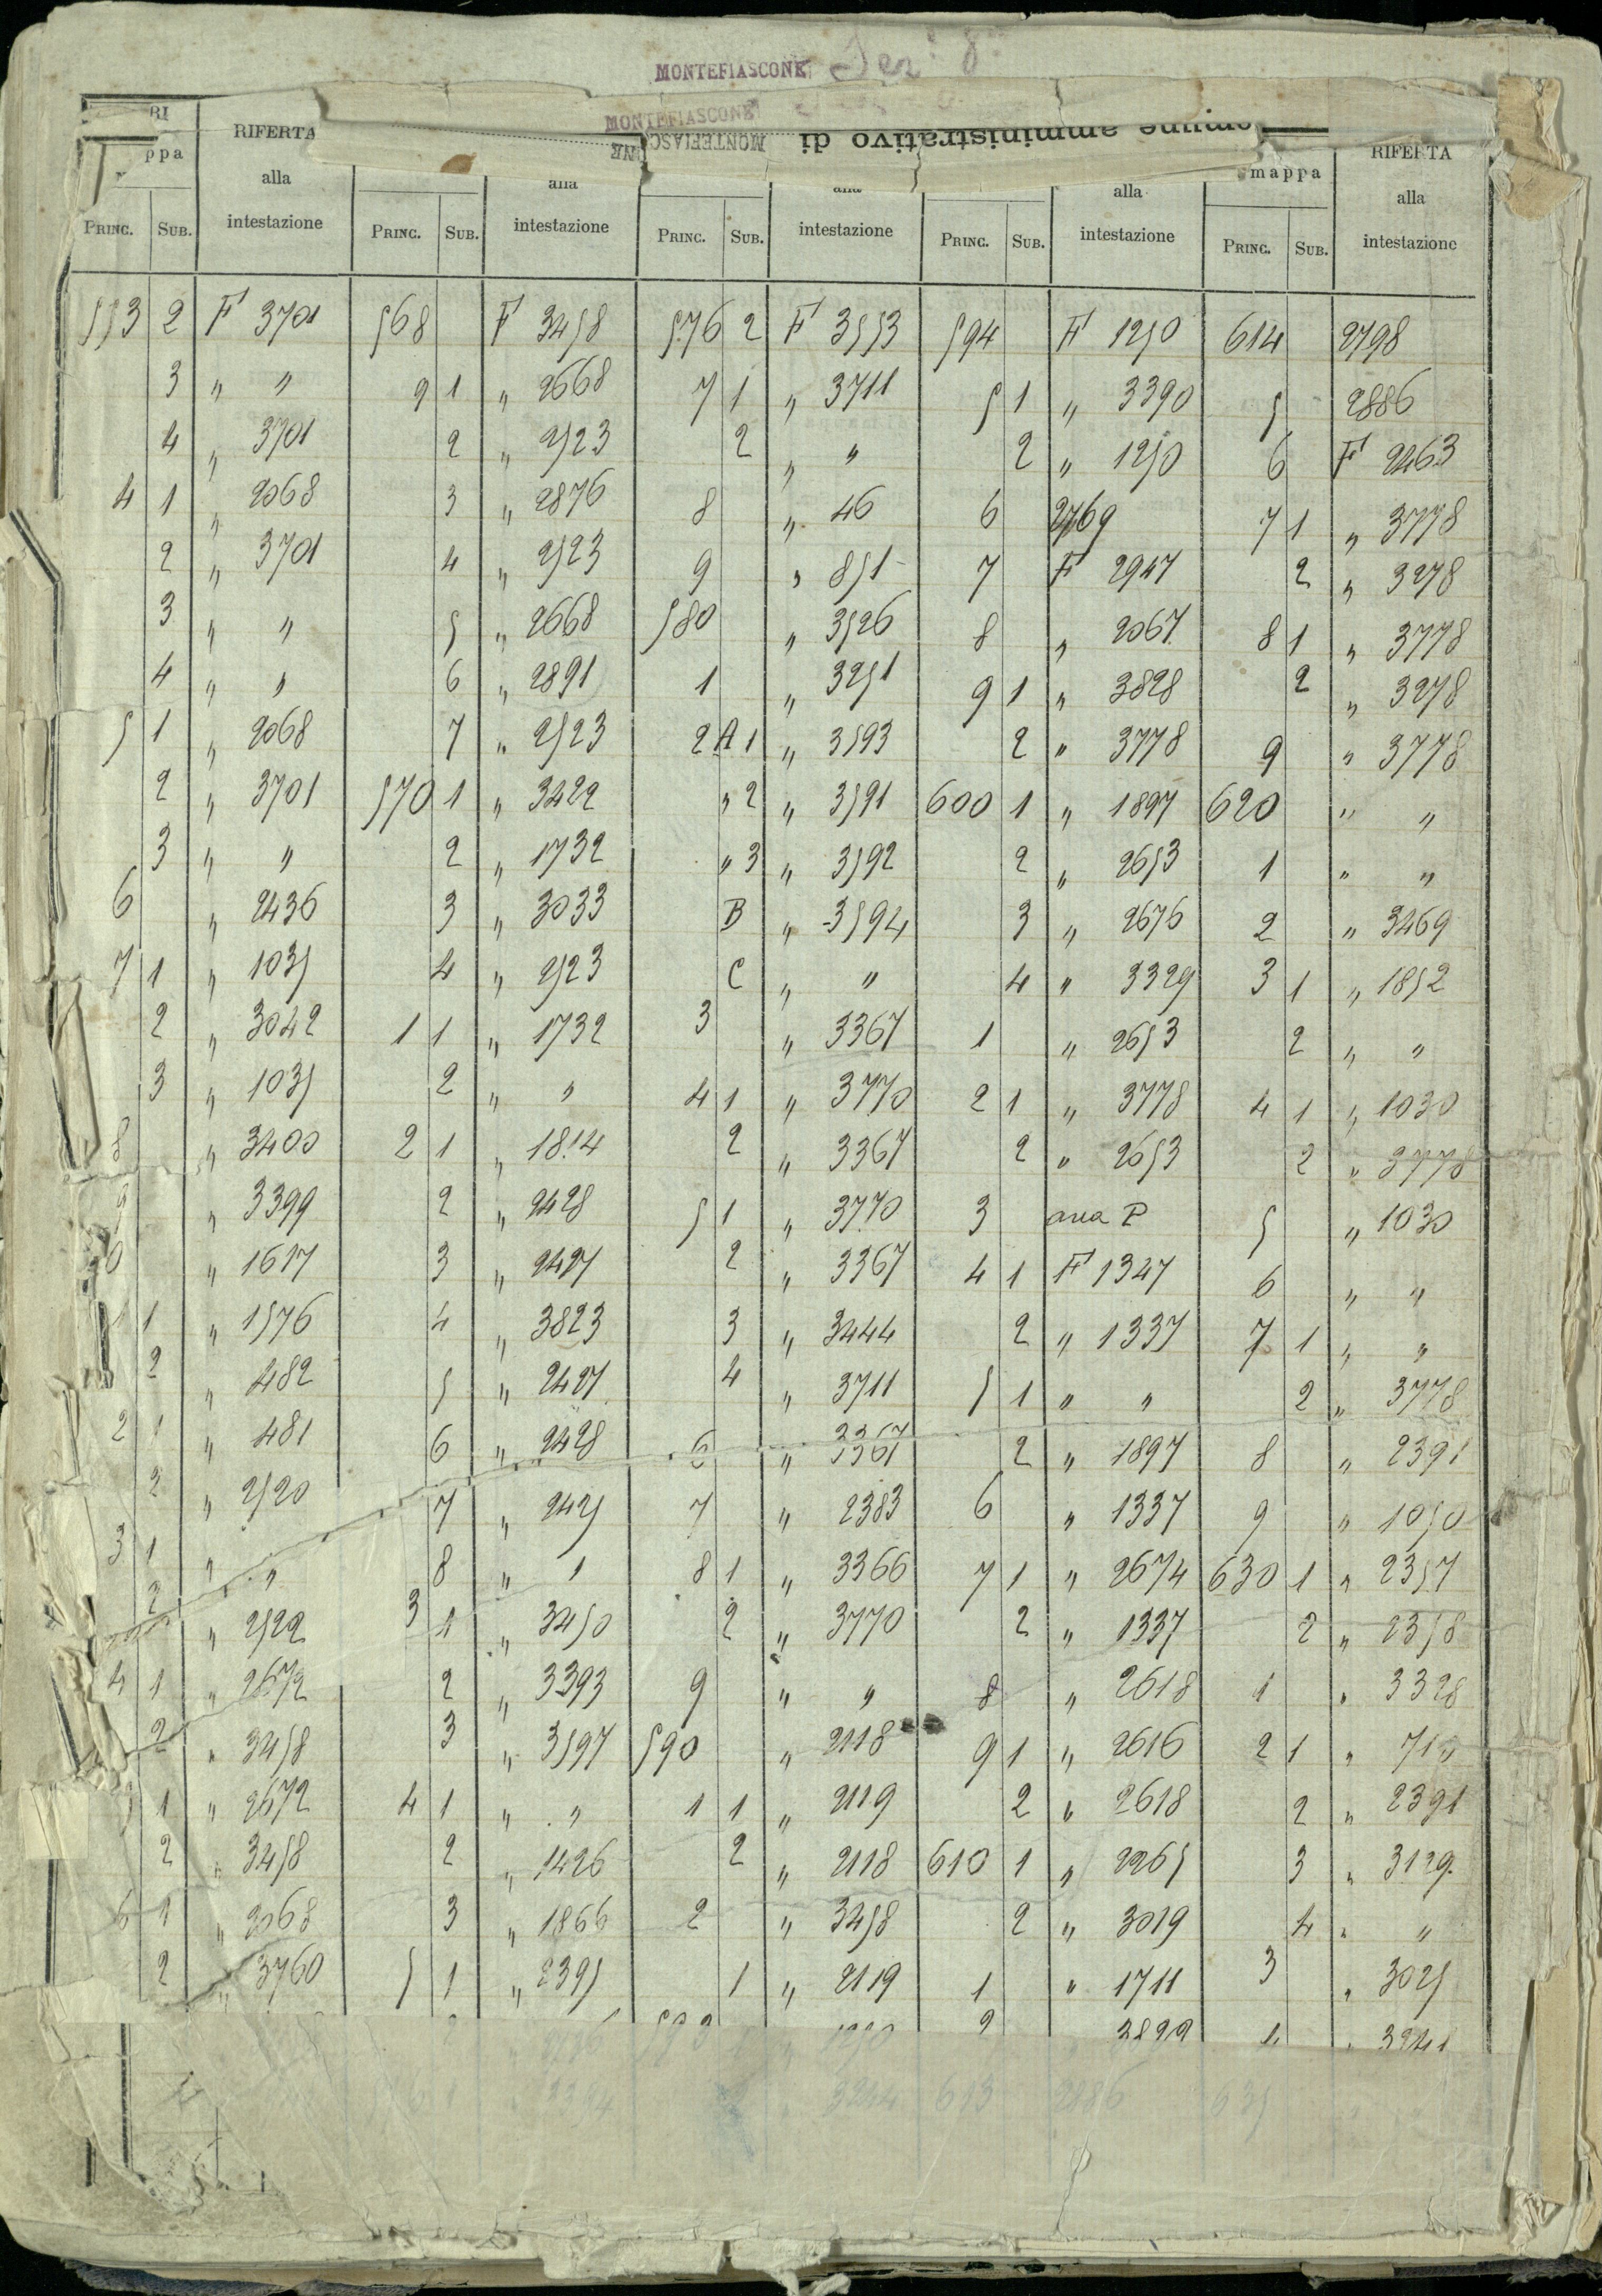 MONTEFIASCONE Sez. 8
MONTEFIASCONE
MONTEFIASC
NE
omune amministrativo di
RI RIFERTA RIFERTA
ppa alla alla alla alla mappa alla
PRINC. SUB. intestazione PRINC. SUB. intestazione PRINC. SUB. intestazione PRINC. SUB. intestazione PRINC. SUB. intestazione
553 2 F 3701 568 F 3458 576 2 F 3553 594 F 1250 614 2798
3 " " 9 1 " 2668 7 1 " 3711 5 1 " 3390 5 2886
4 " 3701 2 " 2523 2 " " 2 " 1250 6 F 2463
4 1 " 2068 3 " 2876 8 " 46 6 2769 7 1 " 3778
2 " 3701 4 " 2523 9 " 851 7 F 2947 2 " 3278
3 " " 5 " 2668 580 " 3526 8 " 2067 8 1 " 3778
4 " " 6 " 2891 1 " 3251 9 1 " 3828 2 " 3278
5 1 " 2068 7 " 2523 2 A 1 " 3593 2 " 3778 9 " 3778
2 " 3701 570 1 " 3422 " 2 " 3591 600 1 " 1897 620 " "
3 " " 2 " 1732 " 3 " 3592 2 " 2653 1 " "
6 " 2436 3 " 3033 B " 3594 3 " 2676 2 " 3469
7 1 " 1035 4 " 2523 C " " 4 " 3329 3 1 " 1852
2 " 3042 1 1 " 1732 3 " 3367 1 " 2653 2 " "
3 " 1035 2 " " 4 1 " 3770 2 1 " 3778 4 1 " 1030
8 " 3400 2 1 " 1814 2 " 3367 2 " 2653 2 " 3778
9 " 3399 2 " 2428 5 1 " 3770 3 area P 5 " 1030
0 " 1617 3 " 2427 2 " 3367 4 1 F 1347 6 " "
1 1 " 1576 4 " 3823 3 " 3444 2 " 1337 7 1 " "
2 " 482 5 " 2427 4 " 3711 5 1 " " 2 " 3778
2 1 " 481 6 " 2428 6 " 3367 2 " 1897 8 " 2391
2 " 2520 7 " 2425 7 " 2383 6 " 1337 9 " 1050
3 1 " " 8 " " 8 1 " 3366 7 1 " 2674 630 1 " 2357
2 " 2522 3 1 " 3450 2 " 3770 2 " 1337 2 " 2358
4 1 " 2672 2 " 3393 9 " " 8 " 2618 1 " 3328
2 " 3458 3 " 3597 590 " 2118 9 1 " 2616 2 1 "
1 " 2672 4 1 " " 1 1 " 2119 2 " 2618 2 " 2391
2 " 3458 2 " 1426 2 " 2118 610 1 " 2265 3 " 3129
6 1 " 2068 3 " 1866 2 " 3458 2 " 3019 4 " "
2 " 3760 5 1 " 2395 1 " 2119 1 " 1711 3 " 3025
2 2899
613 2886 635